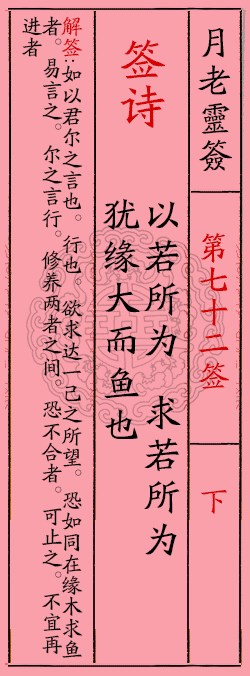 月老靈簽
第七十二签
下
签诗
以若所为 求若所为
犹缘大而鱼也
解签:如以君尔之言也。行也。欲求达一己之所望。恐如同在缘木求鱼
者。易言之。尔之言行。修养两者之间。恐不合者。可止之。不宜再
进者